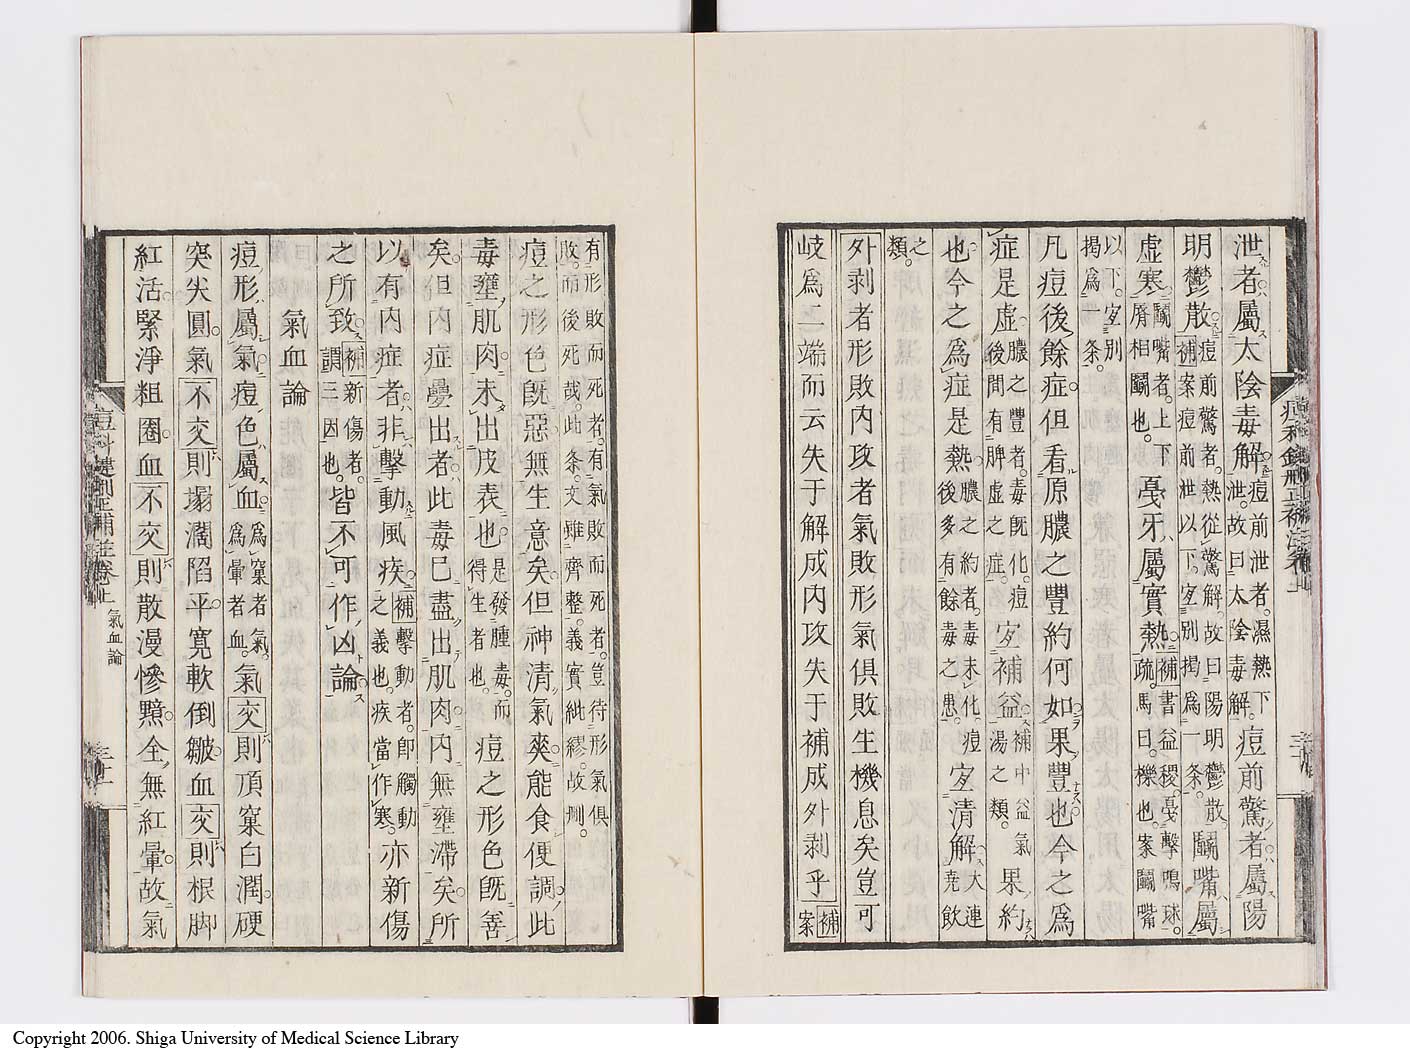 泄者屬太陰毒解痘前泄者濕熱下泄故曰太陰毒解痘前驚者屬陽
明鬱散補痘前驚者熱從驚解故曰陽明鬱散案痘前泄以下宜別揭爲一条鬭嘴屬
虛寒鬭嘴者上下脣相鬭也戞牙屬實熱補書益稷戞擊鳴球疏馬曰櫟也案鬭嘴
以下宜別揭爲一条
凡痘後餘症但看原膿之豐約何如果豐也今之爲
症是虛膿之豐者毒既化痘後間有脾虛之症宜補益補中益氣湯之類果約
也今之爲症是熱膿之約者毒未化痘後多有餘毒之患宜清解大連尭飲
之類
外剥者形敗内攻者氣敗形氣俱敗生機息矣豈可
岐爲二端而云失于解成内攻失于補成外剥乎補案
有形敗而死者有氣敗而死者豈待形氣俱敗而後死哉此条文雖齊整義實紕繆故刪
痘之形色既惡無生意矣但神清氣爽能食便調此
毒壅肌肉未出皮表也是發腫毒而得生者也痘之形色既善
矣但内症疊出者此毒已盡出肌肉内無壅滯矣所
以有内症者非擊動風疾補擊動者即觸動之義也疾當作寒亦新傷
之所致補新傷者謂三因也皆不可作凶論
氣血論
痘形屬氣痘色屬血爲窠者氣爲暈者血氣交則頂窠白潤硬
突尖圓氣不交則塌濶陷平寛軟倒皺血交則根脚
紅活緊淨粗圏血不交則散漫慘黯全無紅暈故氣
痘科鍵刪正補註卷上
氣血論
Copyright 2006. Shiga University of Medical Science Library